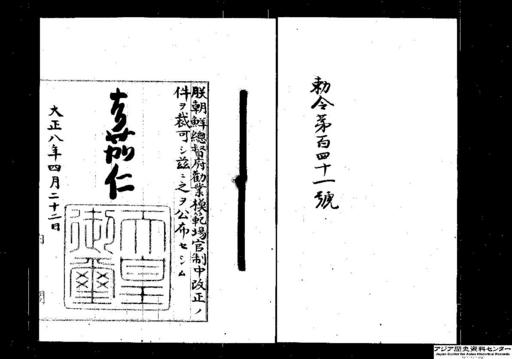 勅令第百四十一號
朕朝鮮總督府勸業模範場官制中改正ノ
件ヲ裁可シ茲ニ之ヲ公布セシム
嘉仁
天皇
御璽
大正八年四月二十二日
アジア歴史資料センター
Japan Center for Asian Historical Records